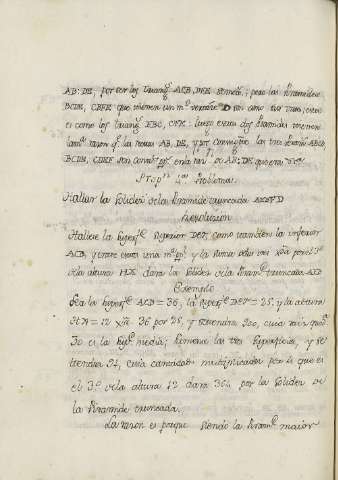 AB: DE, por ser los triang.s ACB, DFE semej.s; pero las Piramides
BCDE, CEFE que tienen un m.o vertice D son como sus vases, esto
es como los triang.s EBC, CFE. luego estas dos Piramides tienen la
tam.n razon q.e las rectas AB, DE, y por consiguiente las tres Piram.s ABCD,
BCDE, CDEF son en la raz.n de AB: DE que
Prop.n 4.a Problema.
Hallar la Solidez de la Piramide truncada ABEFD
Resolucion
Hallese la superf.e superior DEF, como tambien la inferior
ACB, y entre estas una m.a pp.l y la suma de las tres
de la altura HX dara la solidez de la Piram.e truncada
Exemplo
Sea la superf.e ACB = 36, la superf.e DEF = 25, y la altura
HX = 12 36 por 25, y tendremos 900, cuia raiz quad.a
30 es la sup.e media; sumense las tres superficies, y se
tendra 91, cuia cantidad multiplicada por 4 que es
el 3.o de la altura 12 dara 364 por la solidez de
la Piramide truncada.
La razon es porque siendo la Piram.e maior